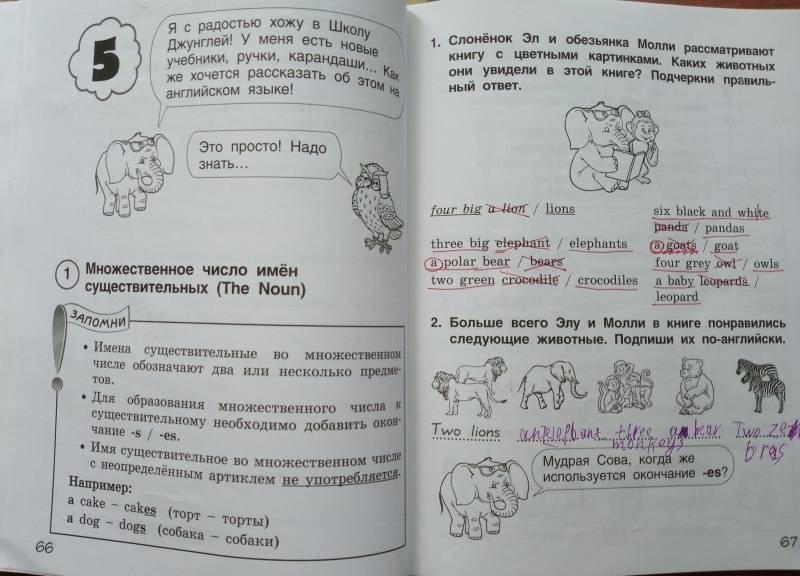 5
Я с радостью хожу в Школу
Джунглей! У меня есть новые
учебники, ручки, карандаши... Как
же хочется рассказать об этом на
английском языке!
Это просто! Надо
знать...
1 Множественное число имён
существительных (The Noun)
ЗАПОМНИ
• Имена существительные во множественном
числе обозначают два или несколько предме-
тов.
• Для образования множественного числа к
существительному необходимо добавить окон-
чание -s / -es.
• Имя существительное во множественном числе
с неопределённым артиклем не употребляется.
Например:
a cake – cakes (торт – торты)
a dog – dogs (собака – собаки)
66
1. Слонёнок Эл и обезьянка Молли рассматривают
книгу с цветными картинками. Каких животных
они увидели в этой книге? Подчеркни правиль-
ный ответ.
four big a lion / lions
three big elephant / elephants
a polar bear / bears
two green crocodile / crocodiles
six black and white
panda / pandas
a goats / goat
four grey owl / owls
a baby leopards /
leopard
2. Больше всего Элу и Молли в книге понравились
следующие животные. Подпиши их по-английски.
Two lions an elephant three a bear Two ze
monkeys bras
Мудрая Сова, когда же
используется окончание -es?
67